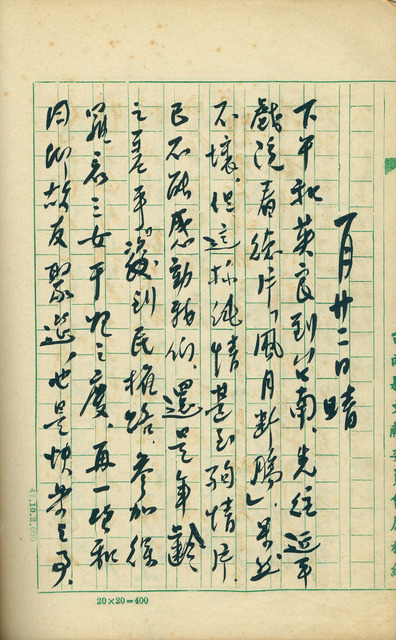 一月廿二日 晴
下午和英良到台南，先往延平
戲院看德片「風月断腸」，果然
不壞，但這种純情甚至殉情片，
已不能感動我们，還是年齡
之差乎。後到民權路，参加徐
羅表三女于
之慶，再一
和
同仰故友聚
，也是快樂之事。
20×20=400